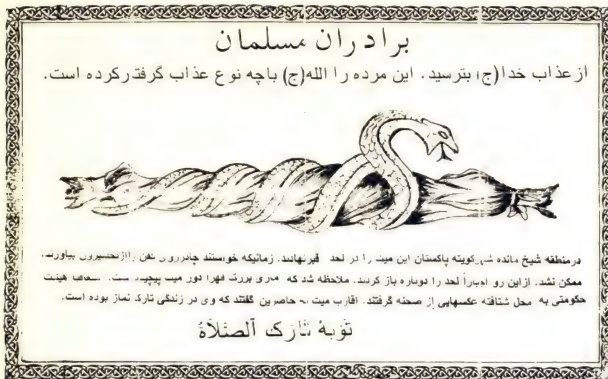 برادران مسلمان
از عذاب خدا(ج) بترسید. این مرده را الله(ج) باچه نوع عذاب گرفتار کرده است.
درمنطقه شیخ مانده شهرکویته پاکستان این میت را در لحد قبرنهادند. زمانیکه خواستند چادرروی کفن را بیاورند.
ممکن نشد. ازاین رو لحد را دوباره باز کردند. ملاحظه شد که بزرگ دور میت است. هیئت
حکومتی به محل شتافته عکسهایی از صحنه گرفتند. اقارب میت حاضرین گفتند که وی در زندگی تارک نماز بوده است.
توبة تارک الصلاة